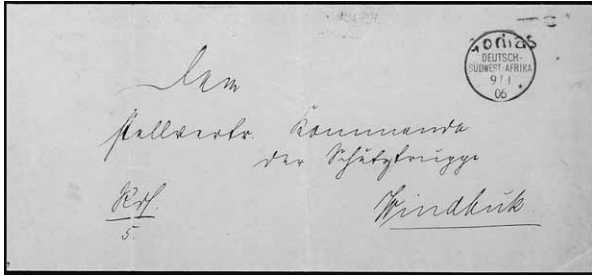 DEUTSCH-
SÜDWEST-AFRIKA
9/1
06
Dem
stellvertr. Kommando
der Schutztruppe
5.
Windhuk